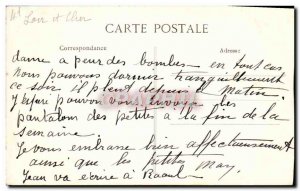 Loir et Cher
CARTE POSTALE
Correspondance
Adresse:
dame a peur des bombes en tout cas
nous pouvons dormir tranquillement
ce soir il pleut depuis matin.
J'espère pouvoir vous envoyer les
pantalons des petites à la fin de la
semaine
Je vous embrasse bien affectueusement
ainsi que les petites May.
Jean va écrire à Raoul.